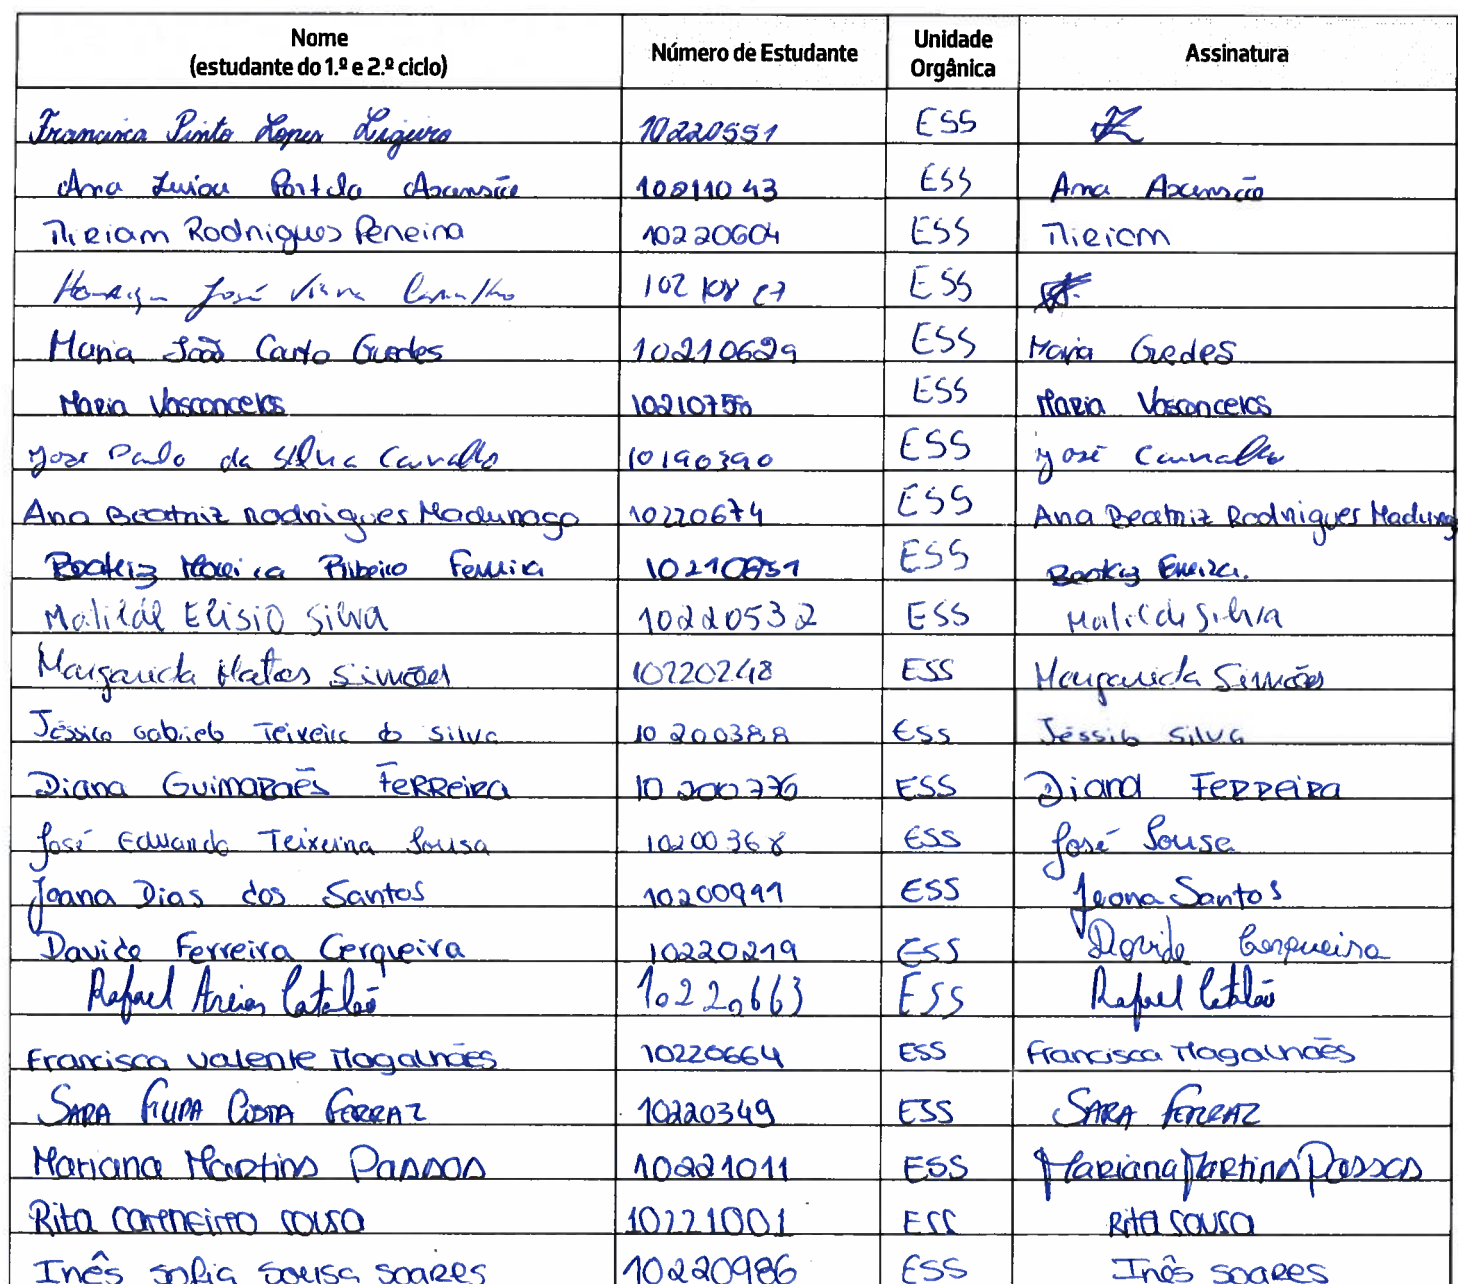 Nome Número de Estudante Unidade Assinatura
(estudante do 1.º e 2.º ciclo) Orgânica
Francisca Pinto Lopes Ligeiro 10220551 ESS
Ana Luisa Portela Ascensão 10211043 ESS Ana Ascensão
Miriam Rodrigues Pereira 10220604 ESS Miriam
José Viana Carvalho ESS
Maria João Couto Guedes 10210629 ESS Maria Guedes
Maria Vasconcelos ESS Maria Vasconcelos
José Paulo da Silva Carvalho 10190390 ESS José Carvalho
Ana Beatriz Rodrigues Madunago 10220674 ESS Ana Beatriz Rodrigues Madunag
Beatriz Moreira Ribeiro Ferreira ESS Beatriz Ferreira.
Matilde Elisio Silva 10220532 ESS Matilde Silva
Margarida Matos Simões 10220248 ESS Margarida Simões
Jéssica Gabriela Teixeira da Silva 10200388 ESS Jéssica Silva
Diana Guimarães Ferreira 10200776 ESS Diana Ferreira
José Eduardo Teixeira Sousa 10200368 ESS José Sousa
Joana Dias dos Santos 10200991 ESS Joana Santos
Davide Ferreira Cerqueira 10220219 ESS Davide Cerqueira
Rafael Areias Catalão 10220663 ESS Rafael Catalão
Francisca Valente Magalhães 10220664 ESS Francisca Magalhães
Sara Filipa Costa Ferraz 10220349 ESS Sara Ferraz
Mariana Martins Passos 10221011 ESS Mariana Martins Passos
Rita Carneiro Sousa 10221001 ESS Rita Sousa
Inês Sofia Sousa Soares 10220986 ESS Inês Soares